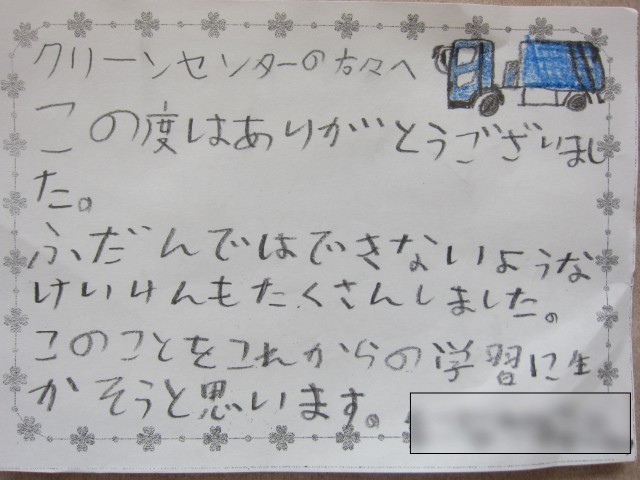 クリーンセンターの方々へ
この度はありがとうございまし
た。
ふだんではできないような
けいけんもたくさんしました。
このことをこれからの学習に生
かそうと思います。